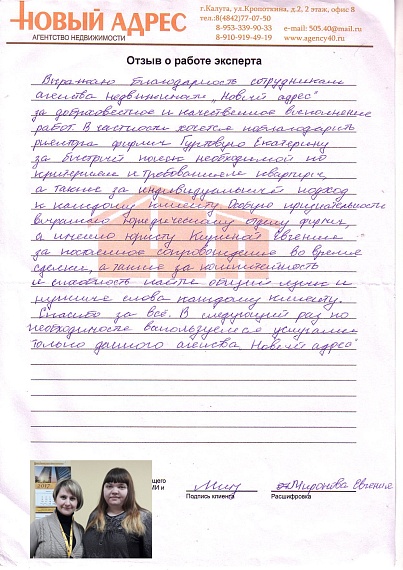 НОВЫЙ АДРЕС
АГЕНТСТВО НЕДВИЖИМОСТИ
г.Калуга, ул.Кропоткина, д.2, 2 этаж, офис 8
тел.:8(4842)77-07-50
8-953-339-90-33
8-910-919-49-19
e-mail: 505.40@mail.ru
www.agency40.ru
Отзыв о работе эксперта
Выражаю благодарность сотрудникам
агенства недвижимости „Новый адрес"
за добросовестное и качественное выполнение
работ. В частности хочется поблагодарить
риелтора фирмы Гуртовую Екатерину
за быстрый поиск необходимой по
критериям и требованиям квартиры,
а также за индивидуальный подход
к каждому клиенту. Особую признательность
выражаю Юридическому отделу фирмы,
а именно юристу Евгении
за сопровождение во время
сделки, а также за
и способность найти общий язык и
нужные слова каждому клиенту.
Спасибо за всё. В следующий раз по
необходимости воспользуемся услугами
только данного агенства „Новый адрес"
2017
щего
МИ и
Подпись клиента
Миронова Евгения
Расшифровка